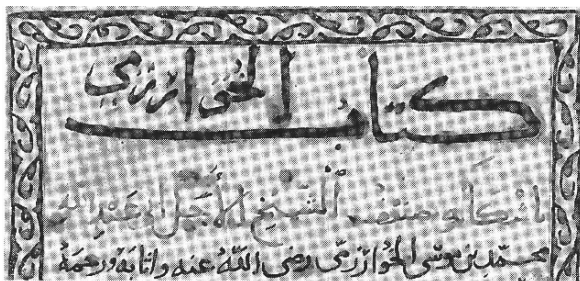 كتاب الخوارزمي
الشيخ الأجل أبي عبد الله
محمد بن موسى الخوارزمي رضى الله عنه وأثابه ورحمة